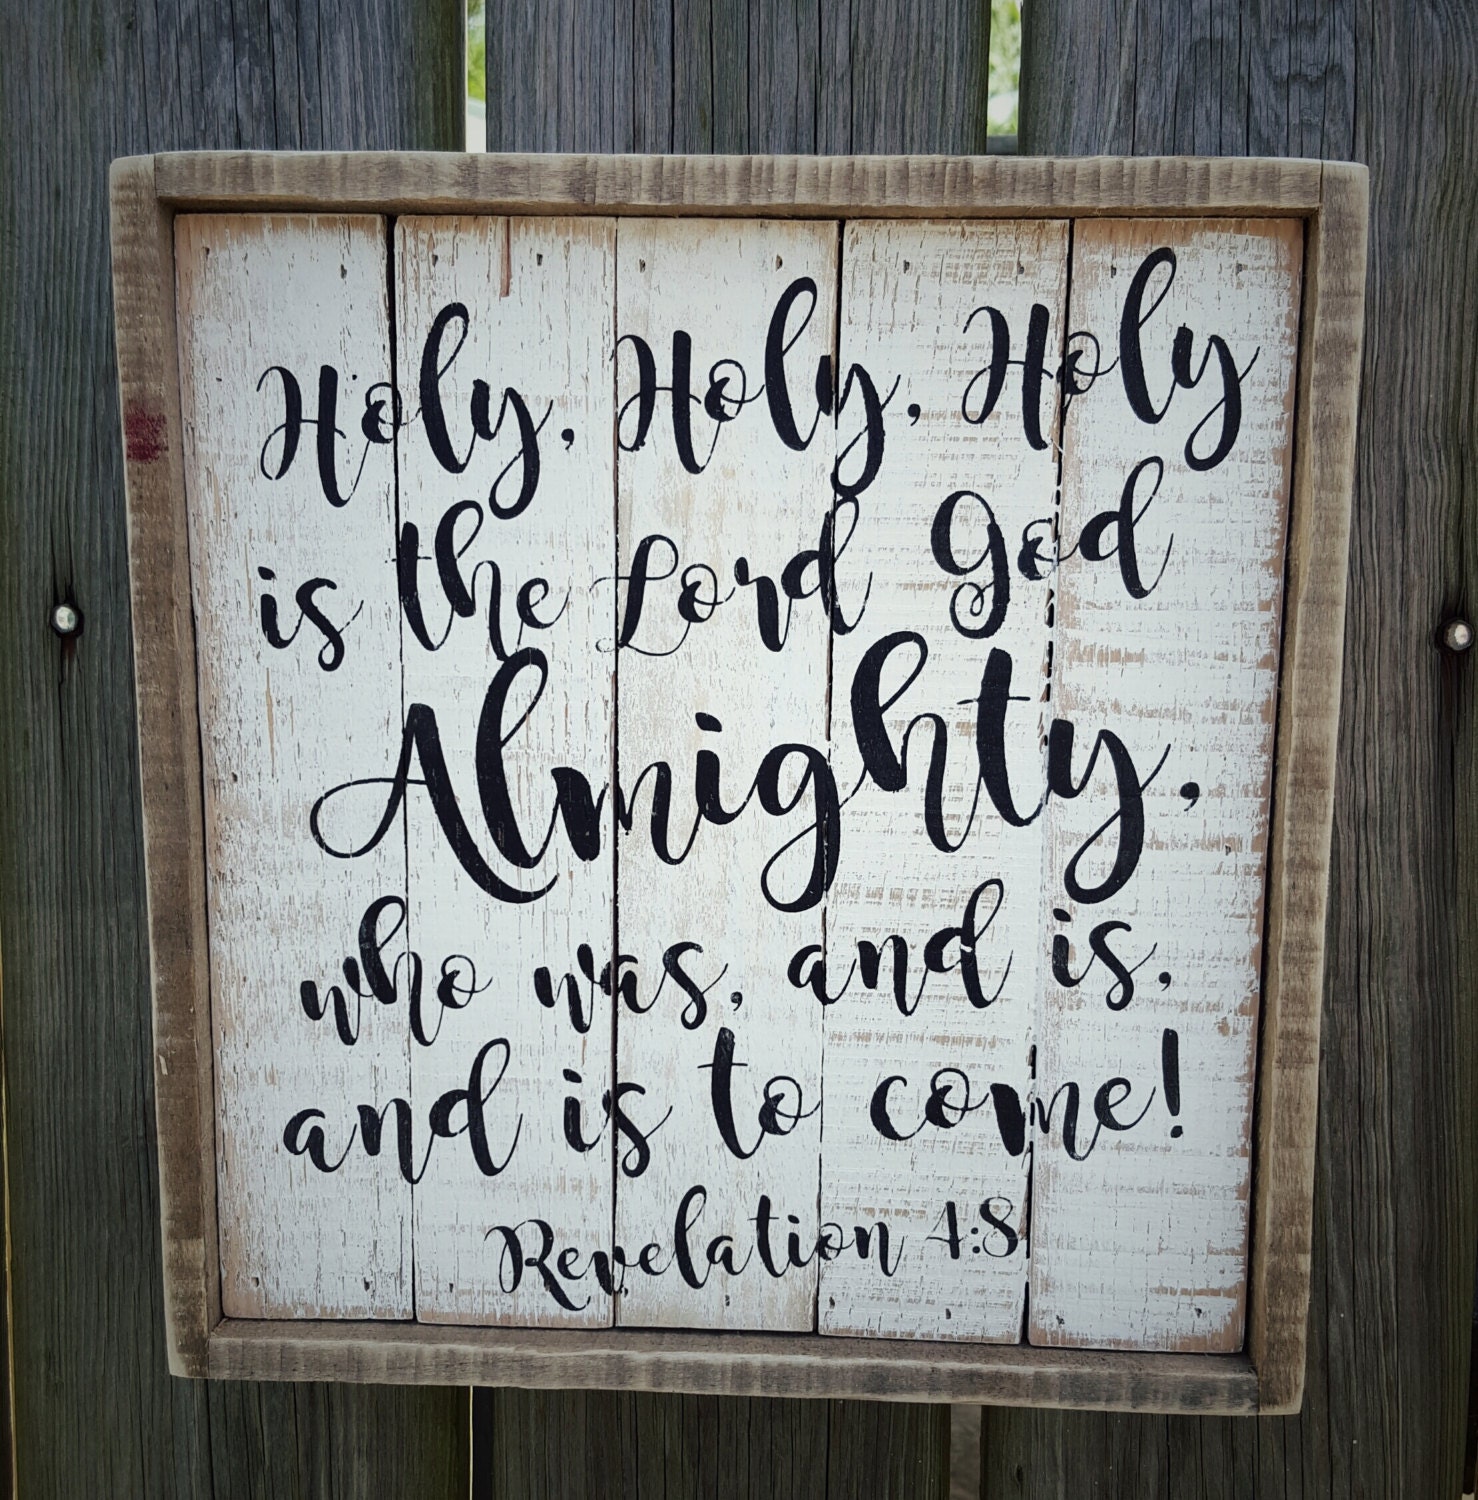 Holy, Holy, Holy
is the Lord God
Almighty,
who was, and is,
and is to come!
Revelation 4:8